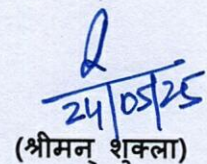 24/05/25
(श्रीमन् शुक्ला)